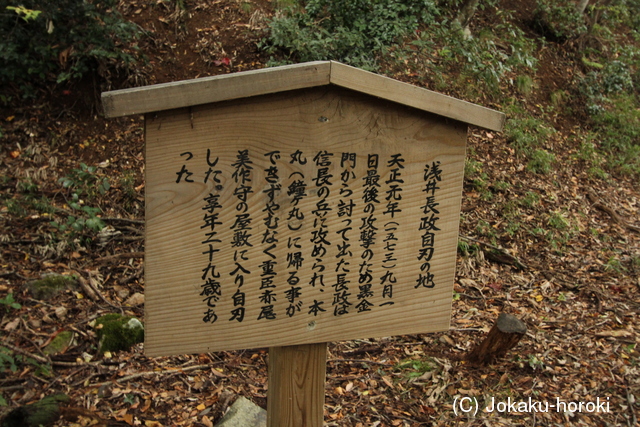 浅井長政自刃の地
天正元年(一五七三)九月一
日最後の攻撃のため黒金
門から討って出た長政は
信長の兵に攻められ、本
丸(鐘ヶ丸)に帰る事が
できずやむなく重臣赤尾
美作守の屋敷に入り自刃
した。享年二十九歳であ
った
(C) Jokaku-horoki